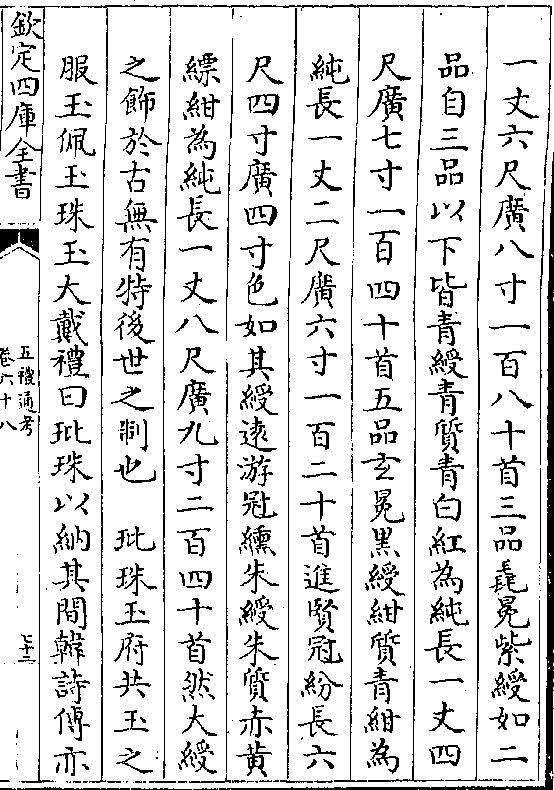 一丈六尺廣八寸一百八十首三品毳冕紫綬如二
品自三品以下皆青綬青質青白紅為純長一丈四
尺廣七寸一百四十首五品玄冕黑綬紺質青紺為
純長一丈二尺廣六寸一百二十首進賢冠紛長六
尺四寸廣四寸色如其綬逺游冠纁朱綬朱質赤黄
縹紺為純長一丈八尺廣九寸二百四十首然大綬
之飾於古無有特後世之制也　玭珠玉府共玉之
服玉佩玉珠玉大戴禮曰玭珠以納其間韓詩傳亦
欽定四庫全書
五禮通考
卷六十八
七十二